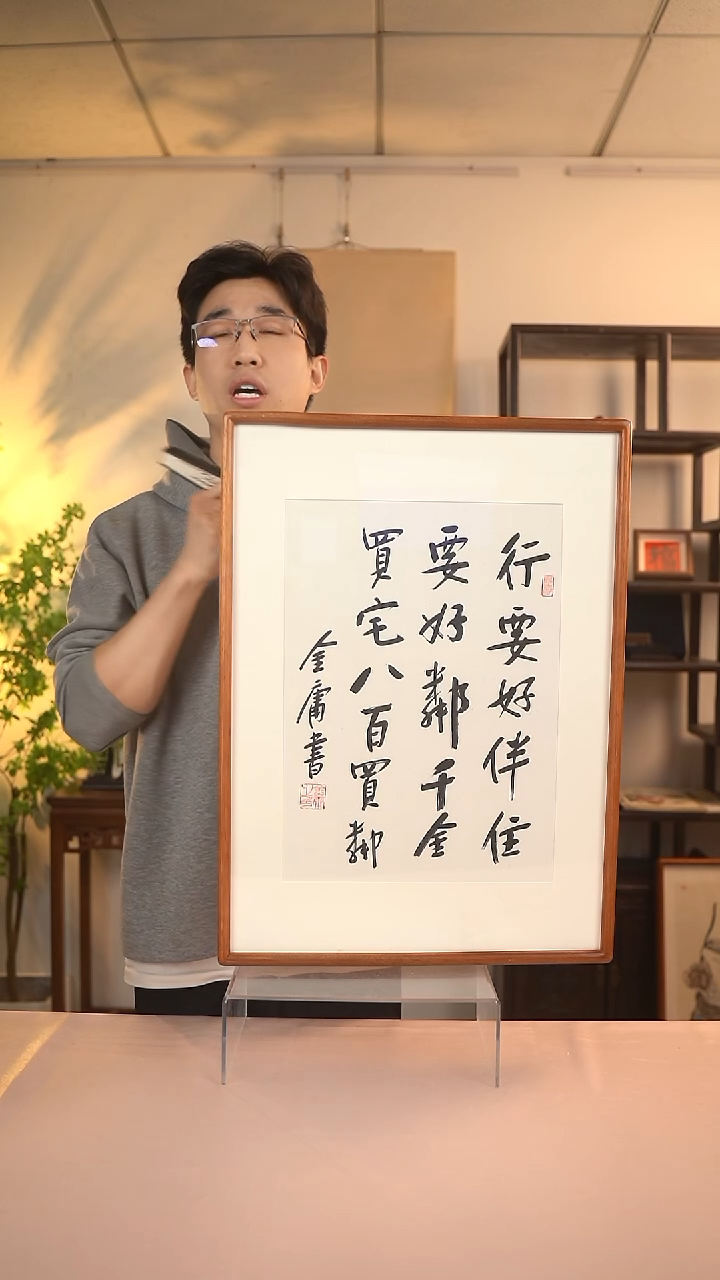 行要好伴住
要好鄰千金
買宅八百買鄰
金庸書